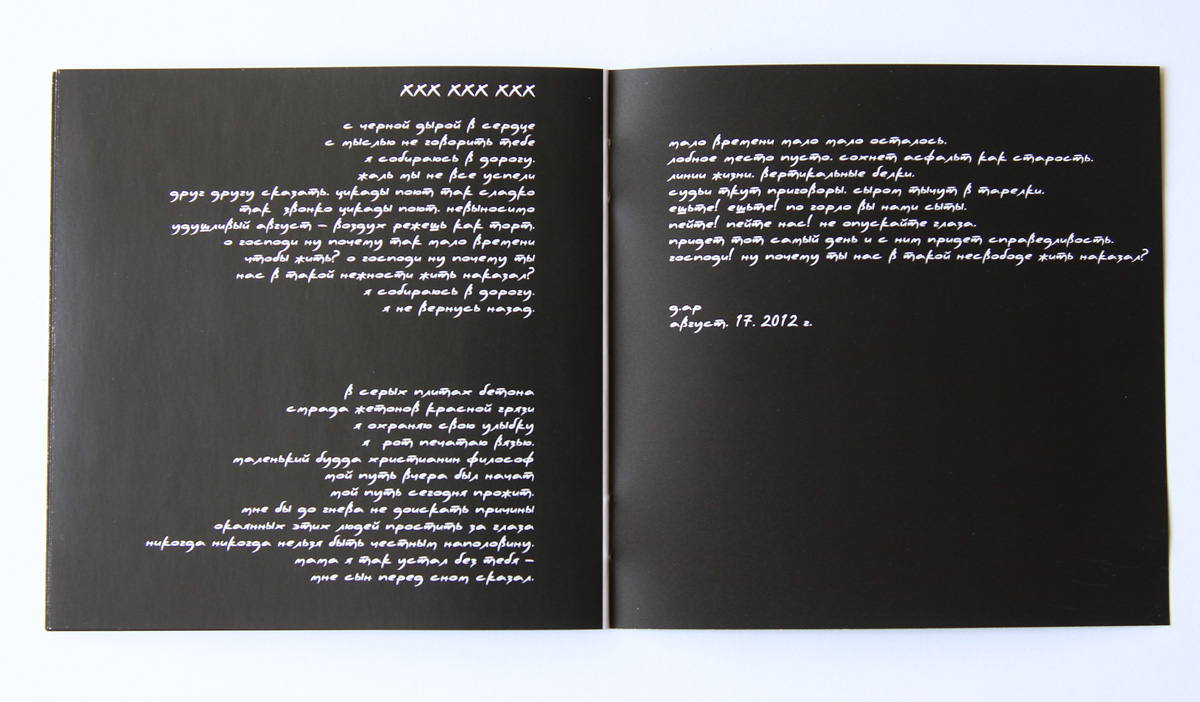 ХХХ ХХХ ХХХ
с черной дырой в сердце
с мыслью не говорить тебе
я собираюсь в дорогу.
жаль мы не все успели
друг другу сказать. цикады поют так сладко
так звонко цикады поют. невыносимо
удушливый август – воздух режешь как торт.
о господи ну почему так мало времени
чтобы жить? о господи ну почему ты
нас в такой нежности жить наказал?
я собираюсь в дорогу.
я не вернусь назад.
в серых плитах бетона
страда жетонов красной грязи
я охраняю свою улыбку
я рот печатаю вязью.
маленький будда христианин философ
мой путь вчера был начат
мой путь сегодня прожит.
мне бы до гнева не доискать причины
окаянных этих людей простить за глаза
никогда никогда нельзя быть честным наполовину.
мама я так устал без тебя –
мне сын перед сном сказал.
мало времени мало мало осталось.
лобное место пусто. сохнет асфальт как старость.
линии жизни. вертикальные белки.
судьи ткут приговоры. сыром тычут в тарелки.
ешьте! ешьте! по горло вы нами сыты.
пейте! пейте нас! не опускайте глаза.
придет тот самый день и с ним придет справедливость.
господи! ну почему ты нас в такой несвободе жить наказал?
д.ар
август. 17. 2012 г.